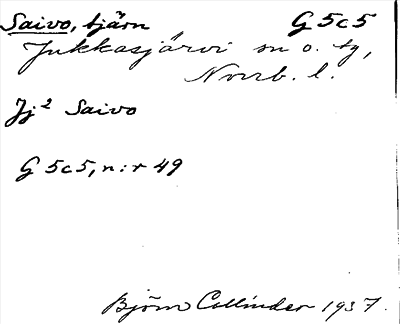 Saivo, tjärn G 5c5
Jukkasjärvi sn o. tg,
Norrb. l.
Jj² Saivo
G 5c5, n:r 49
Björn Collinder 1937.